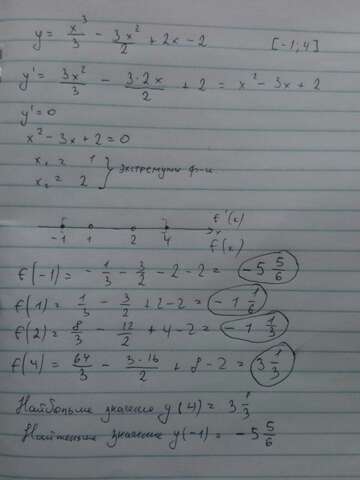 y = x³/3 - 3x²/2 + 2x - 2 [-1; 4]
y' = 3x²/3 - 3·2x/2 + 2 = x² - 3x + 2
y' = 0
x² - 3x + 2 = 0
x₁ = 1
x₂ = 2 } экстремумы ф-и
f'(x)
-1 1 2 4 f(x)
f(-1) = -1/3 - 3/2 - 2 - 2 = -5 5/6
f(1) = 1/3 - 3/2 + 2 - 2 = -1 1/6
f(2) = 8/3 - 12/2 + 4 - 2 = -1 1/3
f(4) = 64/3 - 3·16/2 + 8 - 2 = 3 1/3
Наибольше значение y(4) = 3 1/3
Наименьше значение y(-1) = -5 5/6